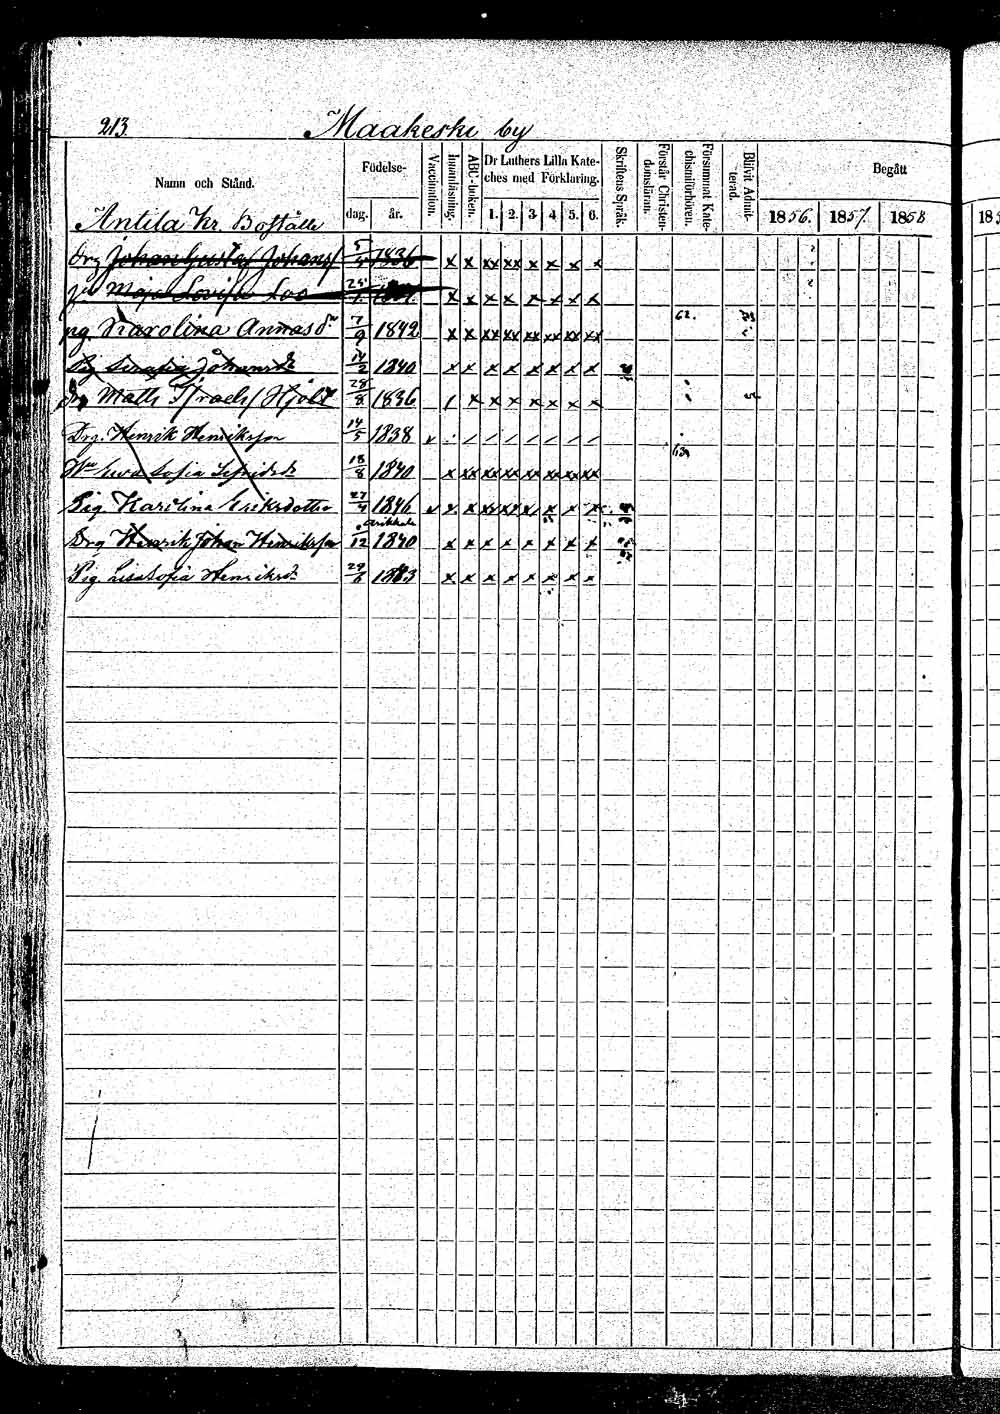 213
Maakeski by
Namn och Stånd.
Födelse-
dag. år.
Vaccination.
Innanläsning.
ABC-boken.
Dr Luthers Lilla Kate-
ches med Förklaring.
1. 2. 3. 4. 5. 6.
Skriftens Språk.
Förstår Christen-
domsläran.
Försummat Kate-
chismiförhören.
Blifvit Admit-
terad.
Begått
1856. 1857. 1858
Antila Kr. Boställe
Drg Johan Gustaf Johans 5/4 1836 x x xx xx x x x x
Maja Lovisa Loo x x x x x x x x
pg. Karolina Annasdr 7/9 1842 x x xx xx xx xx xx xx 62.
Pig Serafia Johansdr 14/2 1840 x x x x x x x x
Drg Matts Israels 28/8 1836 / x x x x x x x
Drg. Henrik Henriksson 14/5 1838
Eva Sofia 18/8 1840 x xx xx xx xx xx xx xx 63
Pig Karolina Eriksdotter 27/4 1846
Drg Henrik Johan Henriksson /12 1840 x x x x x x x x
Pig. Lisa Sofia Henriksdr 29/6 1843 x x x x x x x x